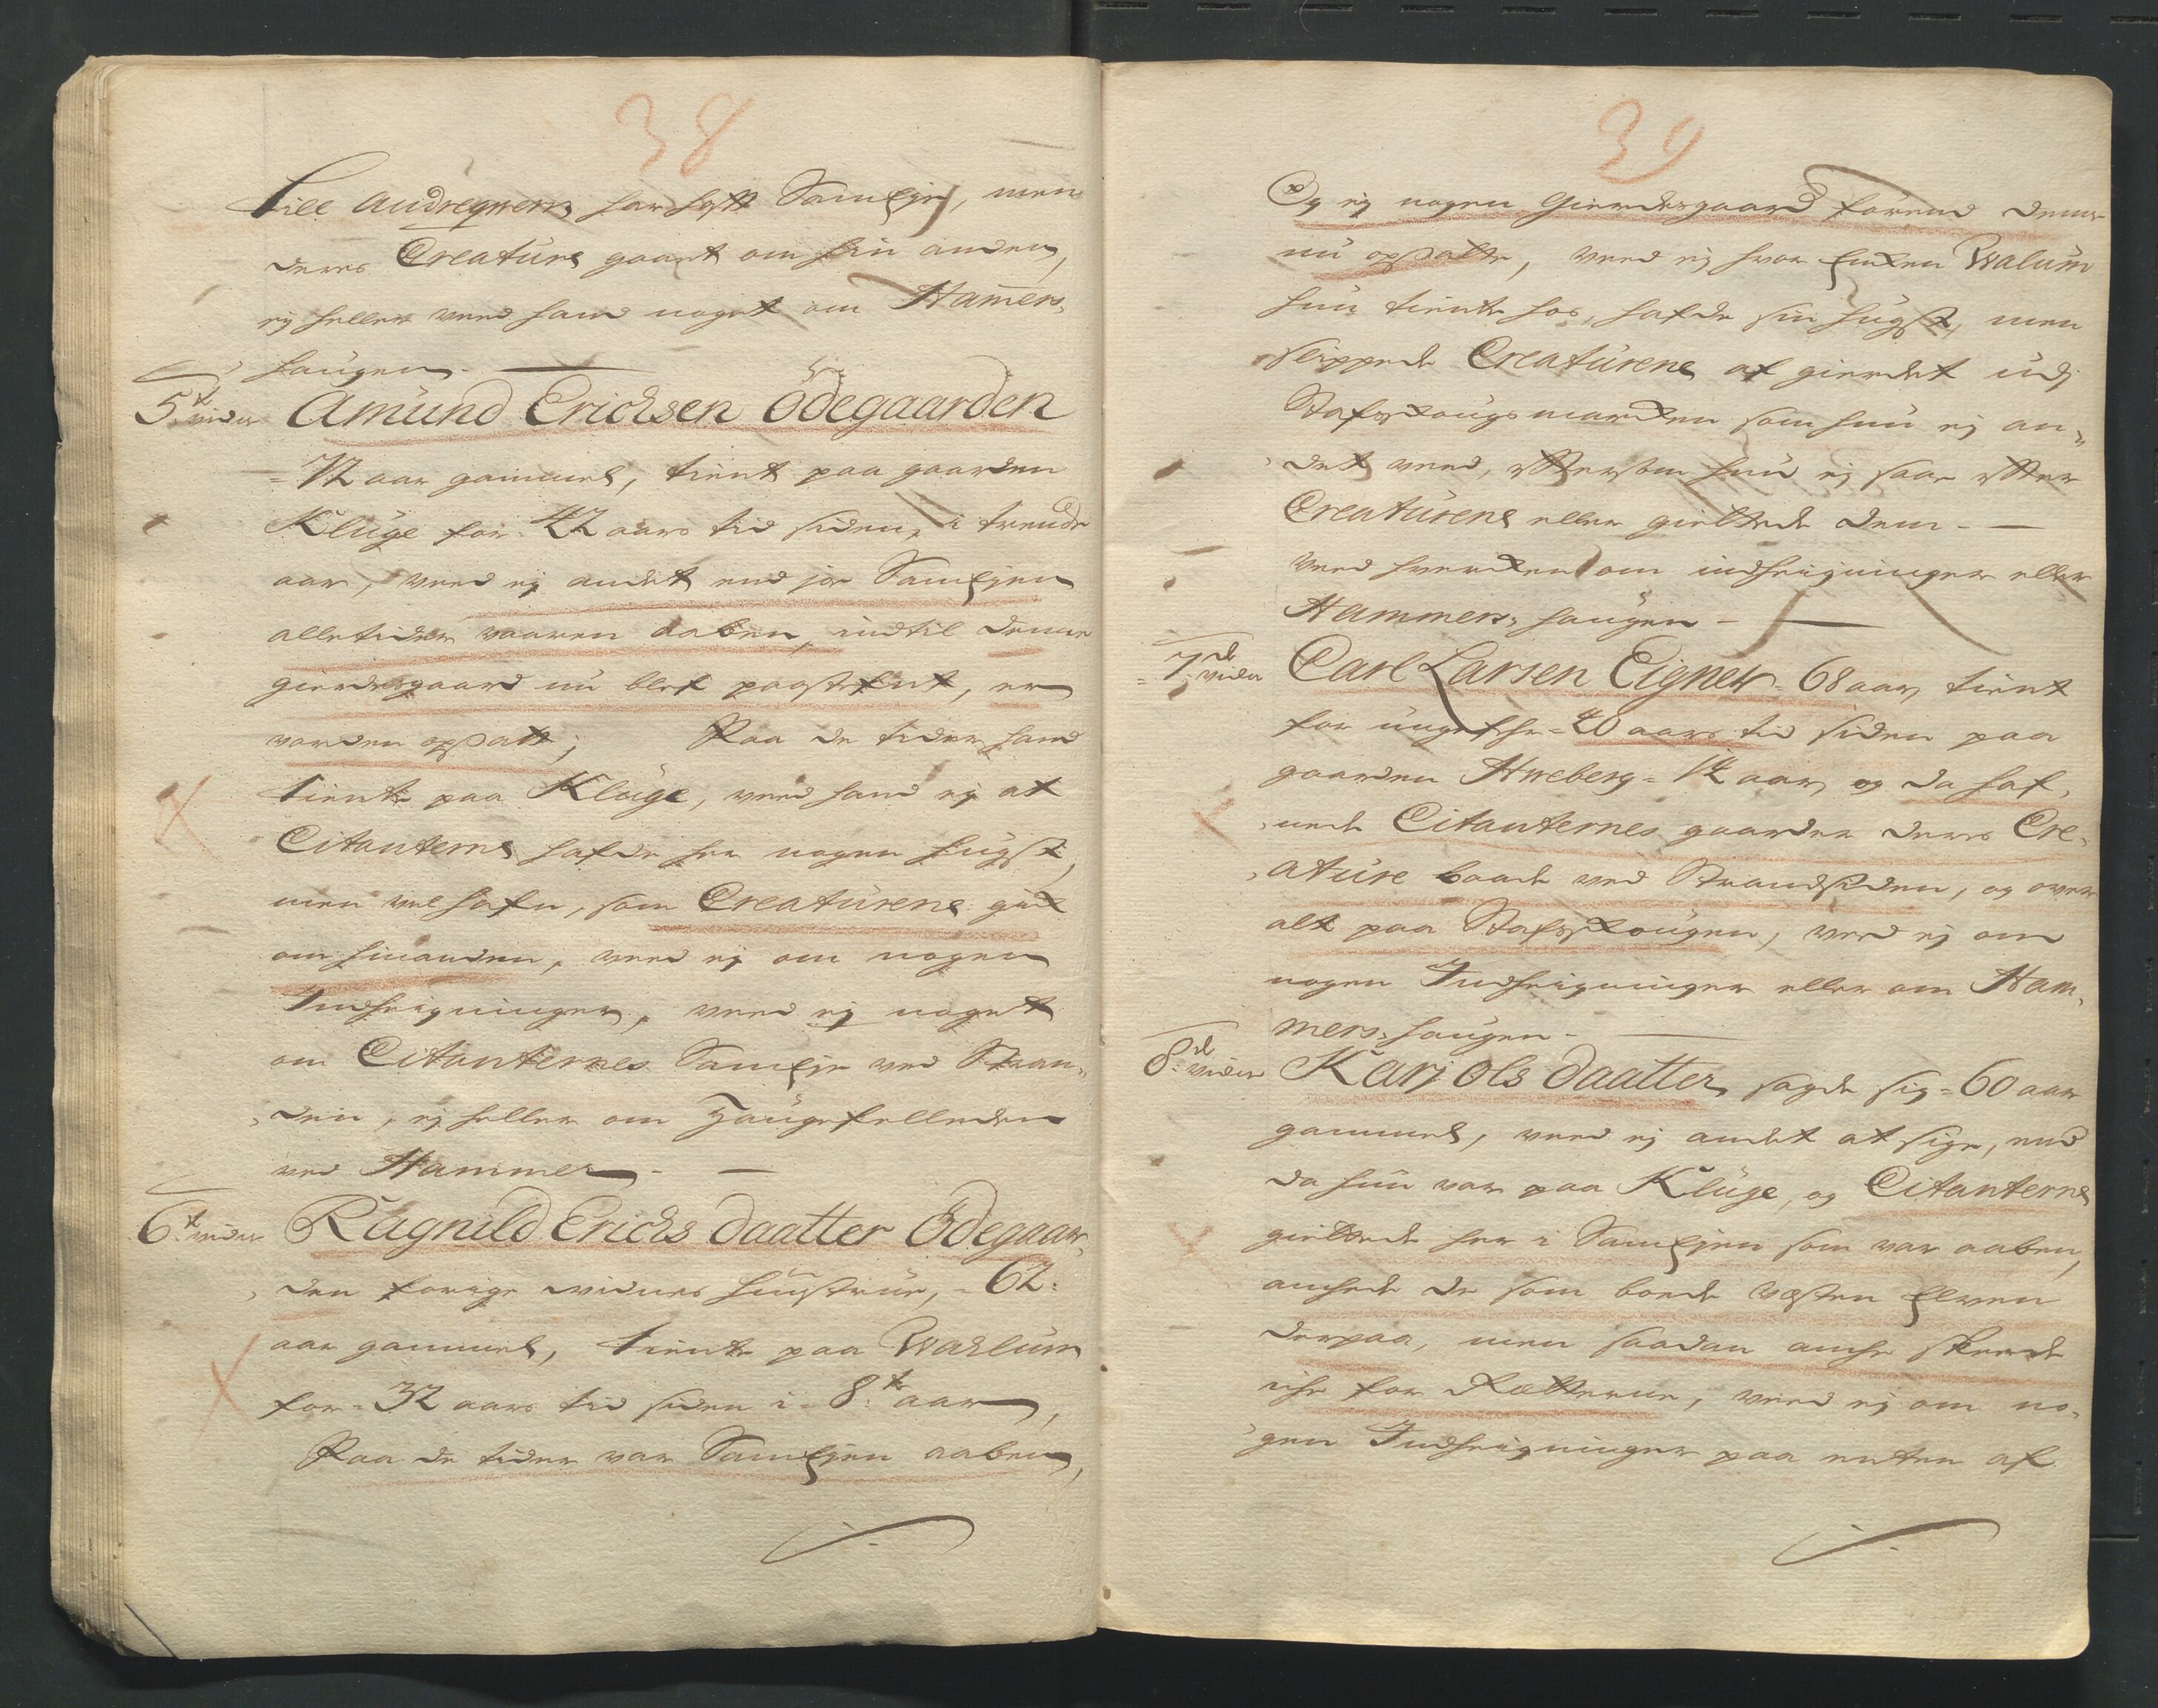 38
till andreqvern har hatt Sameje, men
deres Creature gaaet om hin anden,
ej heller veed hand noget om Hamers,
haugen.
5.t vidne Amund Erichsen Ödegaarden
=72 aar gammel, tient paa gaarden
Kluge for 42 aars tid siden, i trende
aar, veed ej andet end jo Samejen
alletider vaaren aaben, indtil denne
gierdesgaard nu blef paastefnt, er
vorden opsatt; Paa de tider hand
tiente paa Kluge, veed hand ej at
Citanterne hafde her nogen hugst,
men vel hafn, som Creaturene gik
om hinanden, veed ej om nogen
Indheigninger, veed ej noget
om Citanternes Sameje ved Stran,
den, ej heller om Haugefelleden
ved Hammer.
6.t vidne Ragnild Erichs daatter Ödegaar,
den forige vidnes hustrue, =62:
aar gammel, tiente paa Wahlum
for =32 aars tid siden i =8.te aar,
Paa de tider var Samejen aaben,
39
Og ej nogen Gierdesgaard førend denne
nu opsatte, veed ej hvor Enken Walum
hun tiente hos, hafde sin hugst, men
slippede Creaturene af gierdet udj
Stafsskougs marken som hun ej an,
det veed, eftersom hun ej saae efter
Creaturene eller giettede dem.
veed hverken om indheigninger eller
Hammers, haugen.
=7.de vidne Carl Larsen Eigner =68 aar, tient
for ungefehr =40 aars tid siden paa
gaarden Hweberg =12 aar, og da haf,
nede Citanternes gaarder deres Cre,
ature baade ved Strandsiden, og over
alt paa Stafsskougen, veed ej om
nogen Indheigninger eller om Ham,
mers, haugen.
8.de vidne Karj Ols daatter sagde sig =60 aar
gammel, veed ej andet at sige, end
da hun var paa Kluge, og Citanterne
giettede her i Samejen som var aaben,
ankede de som boede vesten Elven
derpaa, men saadan anke skeede
icke for Rætterne, veed ej om no,
gen Indheigninger paa enten af